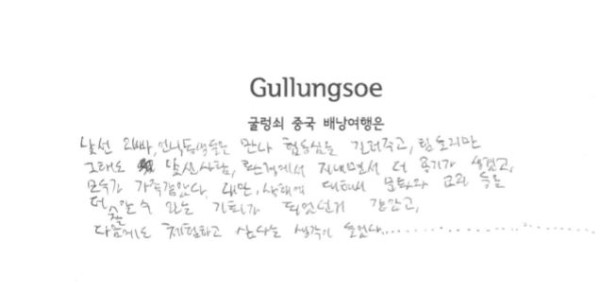 Gullungsoe
굴렁쇠 중국 배낭여행은
낯선 오빠, 언니, 동생들을 만나 협동심을 길러주고, 힘들지만
그래도 낯선사람, 환경에서 지내면서 더 용기가 생겼고,
모두가 가족같았다. 대해서 문화와 교과 등을
더 잘 알 수 있는 기회가 되었던거 같았고,
다음에도 체험하고 싶다는 생각이 들었다.....................